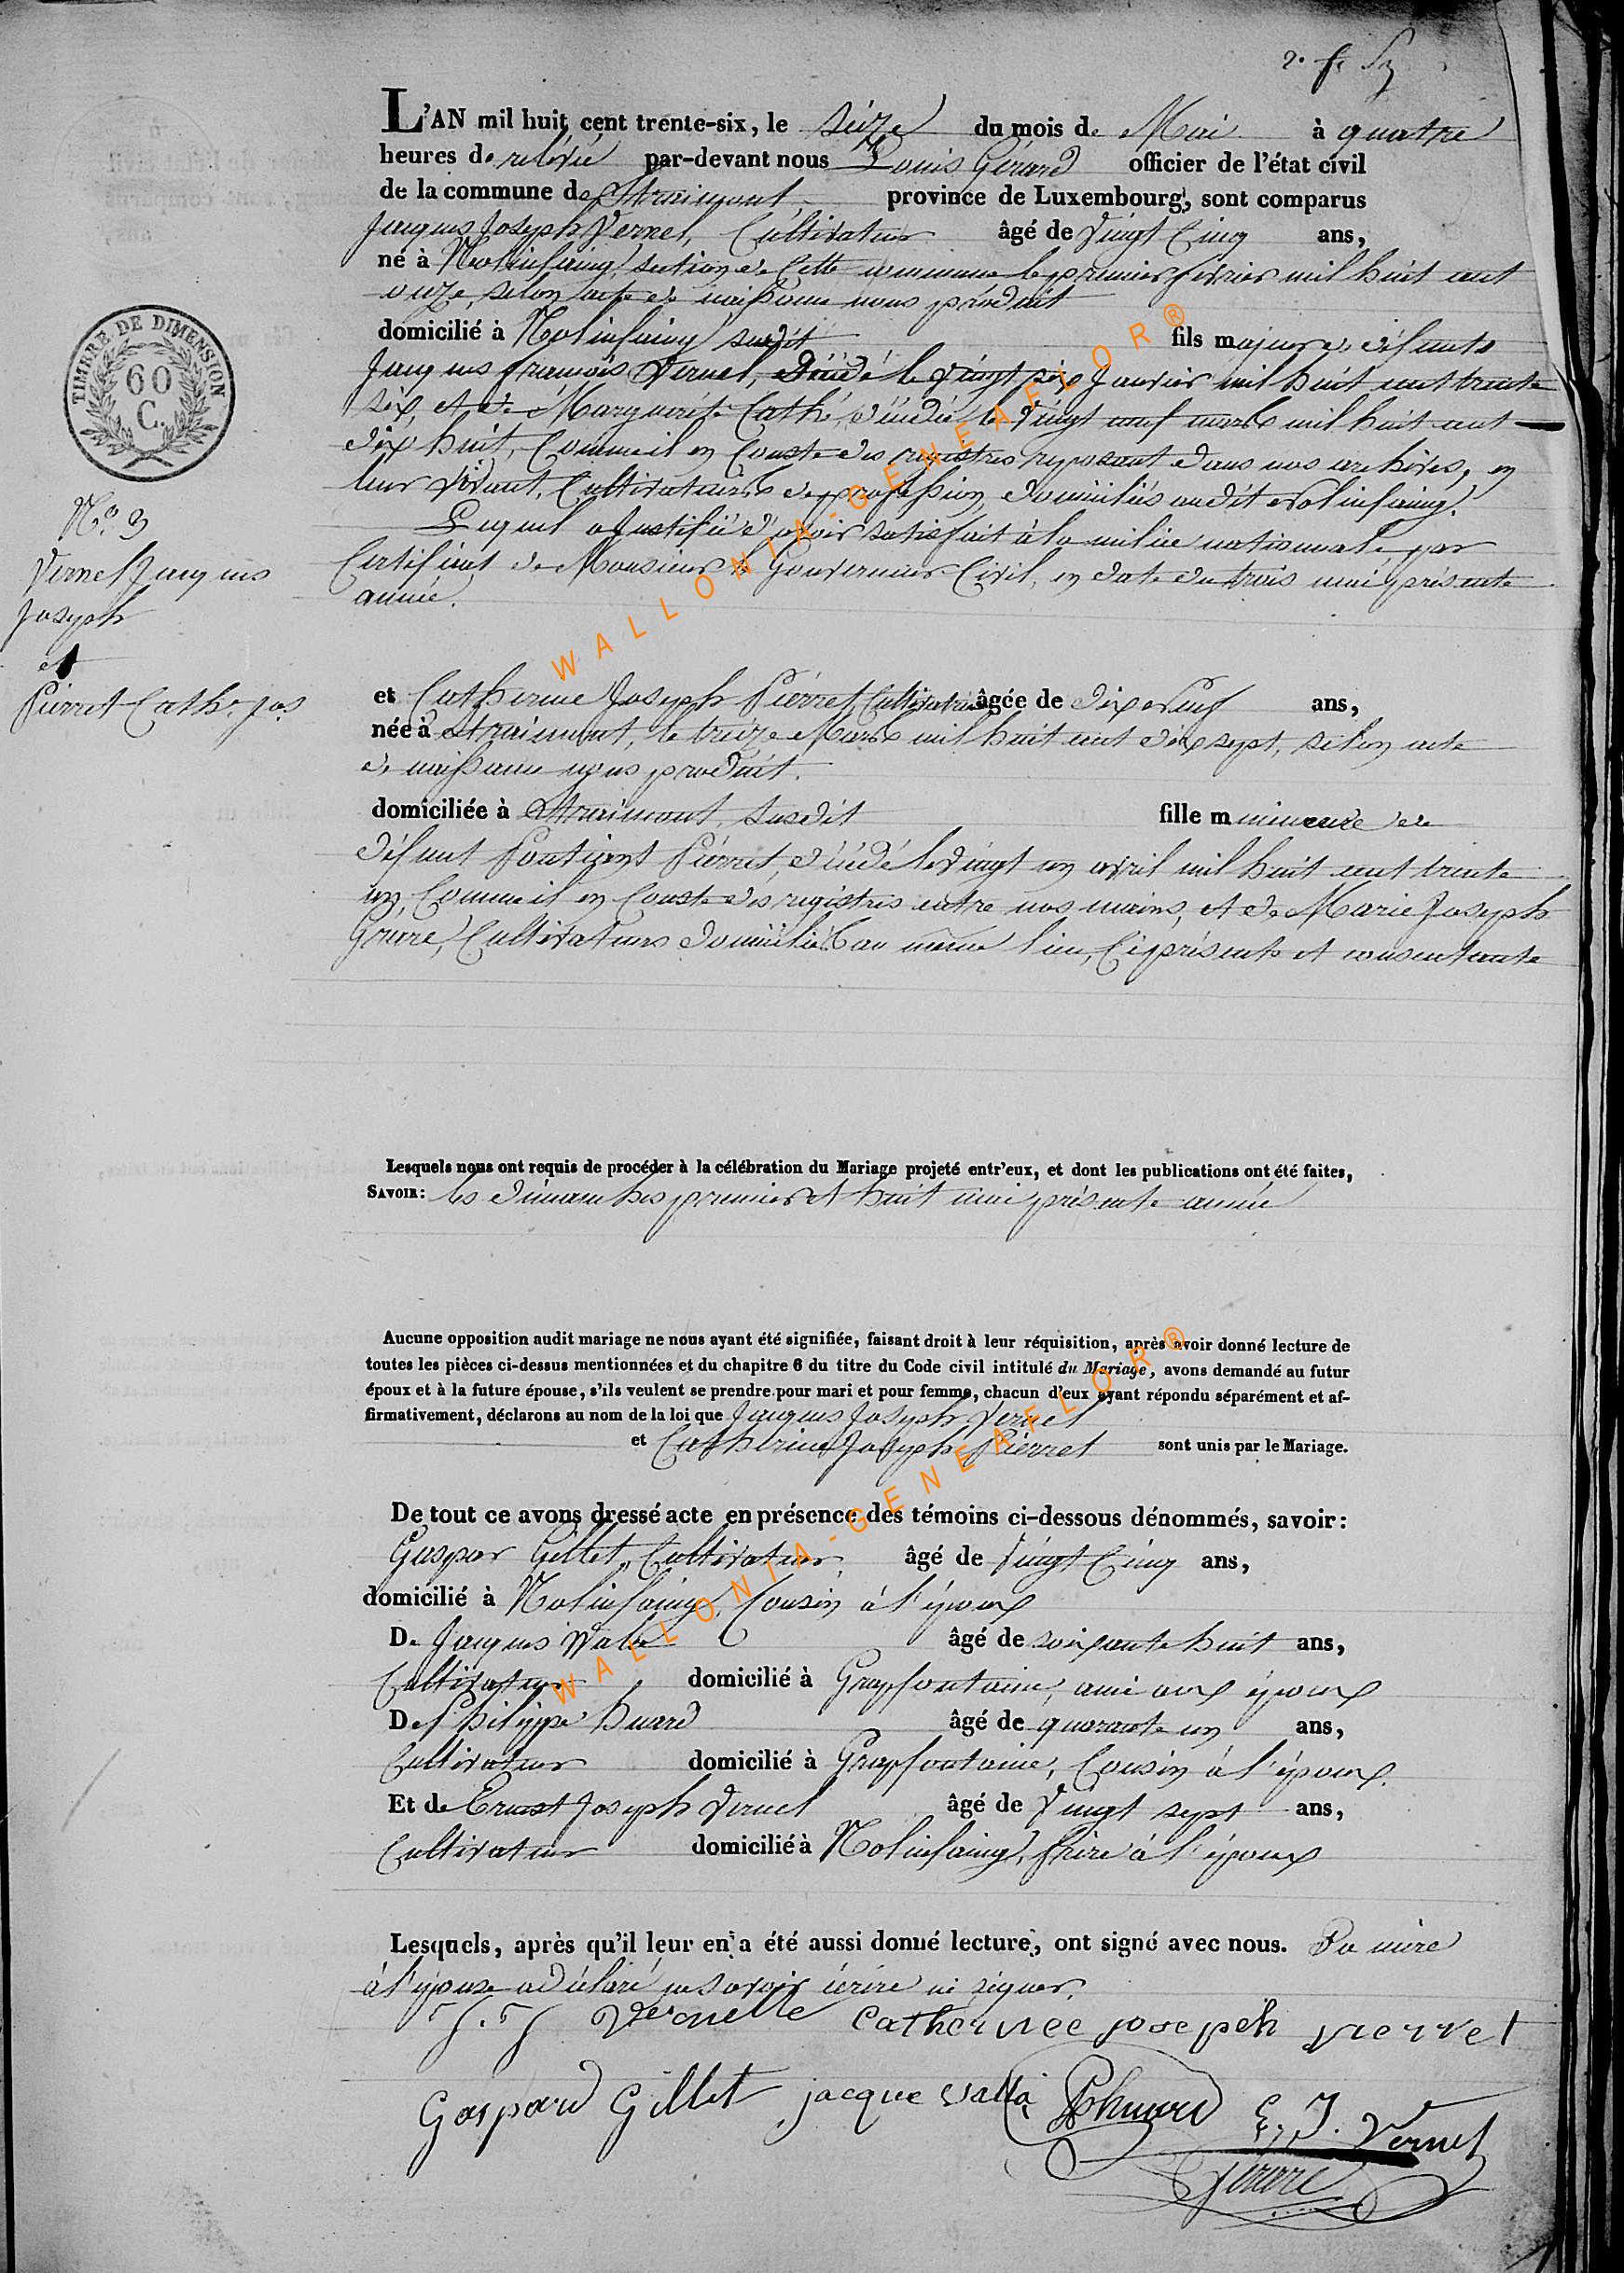 L'AN mil huit cent trente-six, le seize du mois de Mai à quatre
heures de relévée par-devant nous Louis Gérard officier de l'état civil
de la commune de Straimont, province de Luxembourg, sont comparus
Jacques Joseph Vernel, Cultivateur âgé de Vingt Cinq ans,
né à Nolinfaing, section de Cette commune le premier février mil huit cent
onze, selon acte de naissance nous produit
domicilié à Nolinfaing susdit fils majeur de défunts
Jacques françois Vernel, décédé le vingt six Janvier mil huit cent trente
six, et de Marguerite Cathé, décédée le vingt neuf mars mil huit cent
dix huit, Comme il en Conste des registres reposant dans nos archives, en
leur vivant, Cultivateurs de profession, domiciliés audit Nolinfaing.
Lequel a Justifié d'avoir satisfait à la milice nationale par
Certificat de Monsieur le Gouverneur Civil, en date du trois mai présente
année.
TIMBRE DE DIMENSION
60
C.
N.o 3
Vernel Jacques
Joseph
et
Pierret Cath. Jos.
et Catherine Joseph Pierret, Cultivatrice âgée de dix neuf ans,
née à Straimont, le treize Mars mil huit cent dix sept, selon acte
de naissance nous produit.
domiciliée à Straimont, susdit fille mineure de
défunt Pontient Pierret, décédé le vingt un avril mil huit cent trente
un, Comme il en Conste des registres entre nos mains, et de Marie Joseph
Cultivateurs domiciliés au même lieu, Ci présente et consentante
Lesquels nous ont requis de procéder à la célébration du Mariage projeté entr'eux, et dont les publications ont été faites,
SAVOIR: les dimanches premier et huit mai présente année
Aucune opposition audit mariage ne nous ayant été signifiée, faisant droit à leur réquisition, après avoir donné lecture de
toutes les pièces ci-dessus mentionnées et du chapitre 6 du titre du Code civil intitulé du Mariage, avons demandé au futur
époux et à la future épouse, s'ils veulent se prendre pour mari et pour femme, chacun d'eux ayant répondu séparément et af-
firmativement, déclarons au nom de la loi que Jacques Joseph Vernel
et Catherine Joseph Pierret sont unis par le Mariage.
De tout ce avons dressé acte en présence des témoins ci-dessous dénommés, savoir:
Gaspar Gillet, Cultivateur, âgé de Vingt Cinq ans,
domicilié à Nolinfaing, Cousin à l'époux
De Jacques âgé de soixante huit ans,
Cultivateur domicilié à Grapfontaine, ami aux époux
De Philippe huard âgé de quarante un ans,
Cultivateur domicilié à Grapfontaine, Cousin à l'époux.
Et de Ernest Joseph Vernel âgé de Vingt sept ans,
Cultivateur domicilié à Nolinfaing, frère à l'époux
Lesquels, après qu'il leur en a été aussi donné lecture, ont signé avec nous. La mère
à l'épouse a déclaré ne savoir écrire ni signer.
J. J Vernelle catherinee joseph pierret
Gaspard Gillet jacque Phuard E. J. Vernel
Gérard
WALLONIA-GENEAFLOR®
WALLONIA-GENEAFLOR®